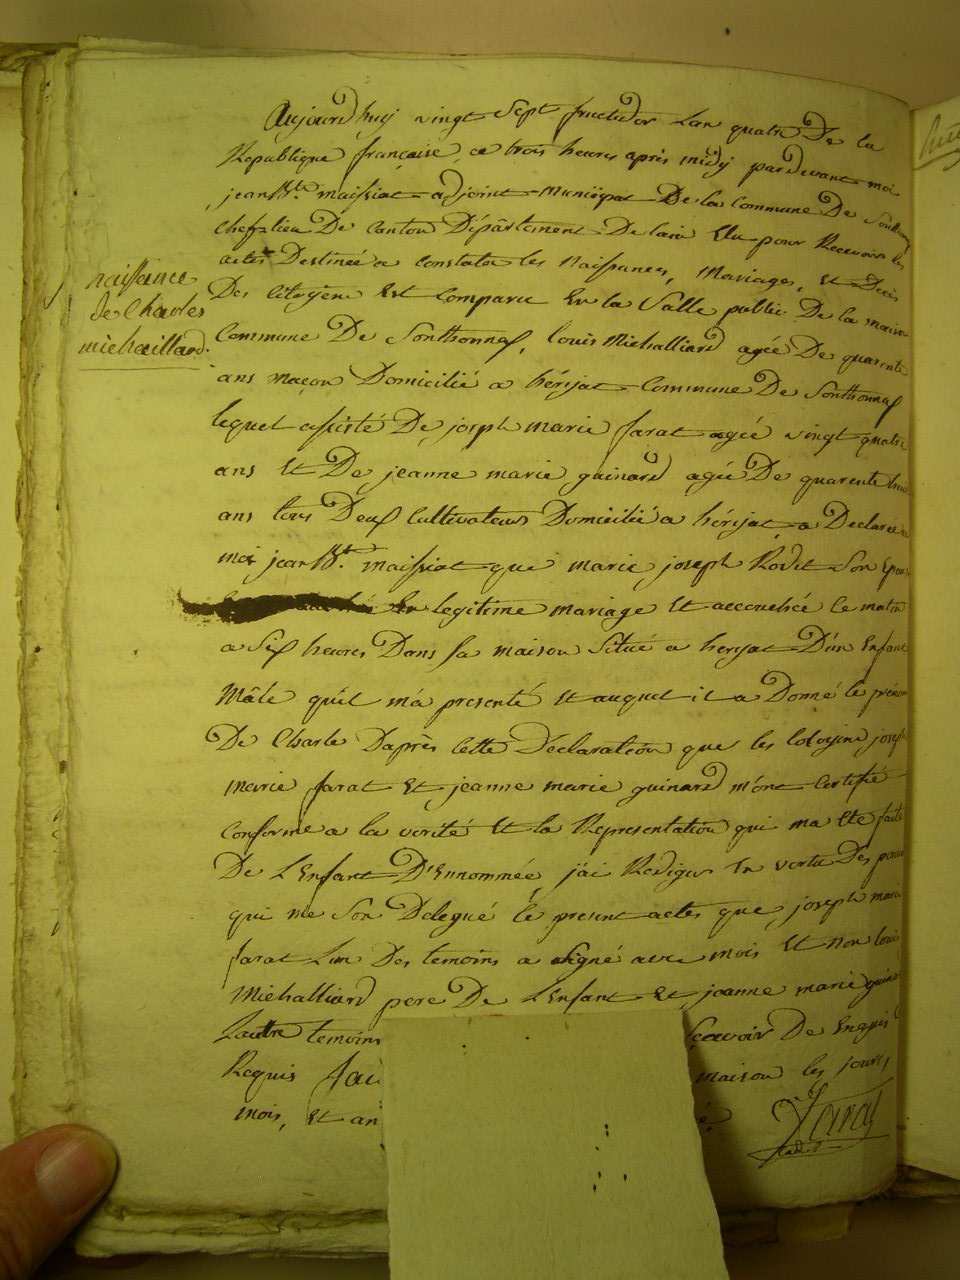 naissance
de Charles
michaillard.
Aujourd'huy vingt sept fructidor Lan quatre De la
Republique française, a trois heures après midy pardevant moi
jean Bte. maissiat adjoint Municipal De la Commune De Sonthonnax
cheflieu De Canton Département De lain Elu pour Recevoir les
actes Destinée a constater les Naissances, Mariages, et Decés
Des citoyens Est Comparu En la Salle public De la maison
Commune De Sonthonnax, louis Michalliard agée De quarente
ans maçon Domicilié a hérijat Commune De Sonthonnax
lequel assisté De joseph marie farat agée vingt quatre
ans Et De jeanne marie guinard agée De quarente
ans tous Deux Cultivateurs Domicilié a hérijat a Declaré a
moi jean Bt. maissiat que marie joseph Rodet Son Epouse
En legitime mariage Et accouchée le matin
a Six heures Dans sa maison Situé a herijat D'un Enfant
Mâle qu'il m'a presenté Et auquel il a Donné le prénom
De Charle D'après Cette Declaration que les Citoyins joseph
marie farat Et jeanne marie guinard m'ont Certifié
Conforme a la verité Et la Representation qui ma Eté faite
De L'Enfant D'Ennommée, j'ai Redigés En vertu Des pouvoirs
qui me Son Delegué le present actes que, joseph marie
farat Lun Des temoins a signé avec mois Et non louis
Michalliard pere De L'Enfant Et jeanne marie guinard
Lautre temoins sçavoir De Enquis
Requis fai maison les jours,
mois, Et an
farat